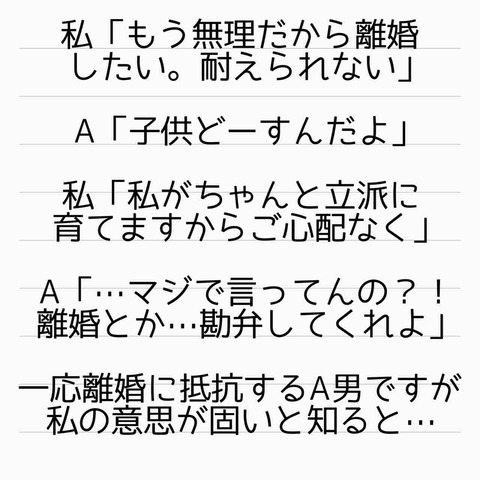 私「もう無理だから離婚
したい。耐えられない」
A「子供どーすんだよ」
私「私がちゃんと立派に
育てますからご心配なく」
A「…マジで言ってんの？！
離婚とか…勘弁してくれよ」
一応離婚に抵抗するA男ですが
私の意思が固いと知ると…